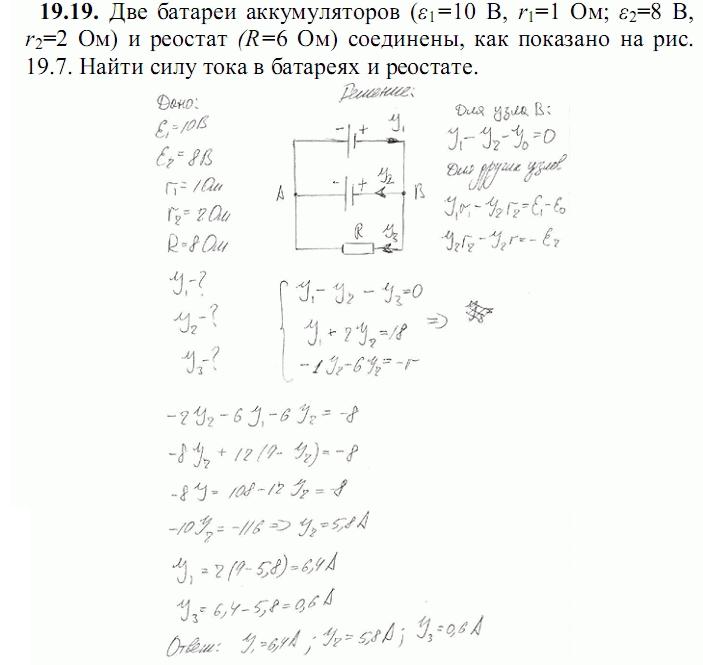 19.19. Две батареи аккумуляторов (ε₁=10 В, r₁=1 Ом; ε₂=8 В,
r₂=2 Ом) и реостат (R=6 Ом) соединены, как показано на рис.
19.7. Найти силу тока в батареях и реостате.
Дано:
ε₁=10В
ε₂=8В
r₁=1Ом
r₂=2Ом
R=8Ом
У₁-?
У₂-?
У₃-?
Решение:
- + У₁
A - + У₂ B
R У₃
Для узла В:
У₁-У₂-У₀=0
Для других узлов
У₁r₁-У₂r₂=ε₁-ε₀
У₂r₂-У₂r=-ε₂
У₁-У₂-У₃=0
У₁+2У₂=18 =>
-1У₂-6У₂=-r
-2У₂-6У₁-6У₂=-8
-8У₂+12(9-У₂)=-8
-8У=108-12У₂=-8
-10У₂=-116=>У₂=5,8А
У₁=2(9-5,8)=6,4А
У₃=6,4-5,8=0,6А
Ответ: У₁=6,4А; У₂=5,8А; У₃=0,6А